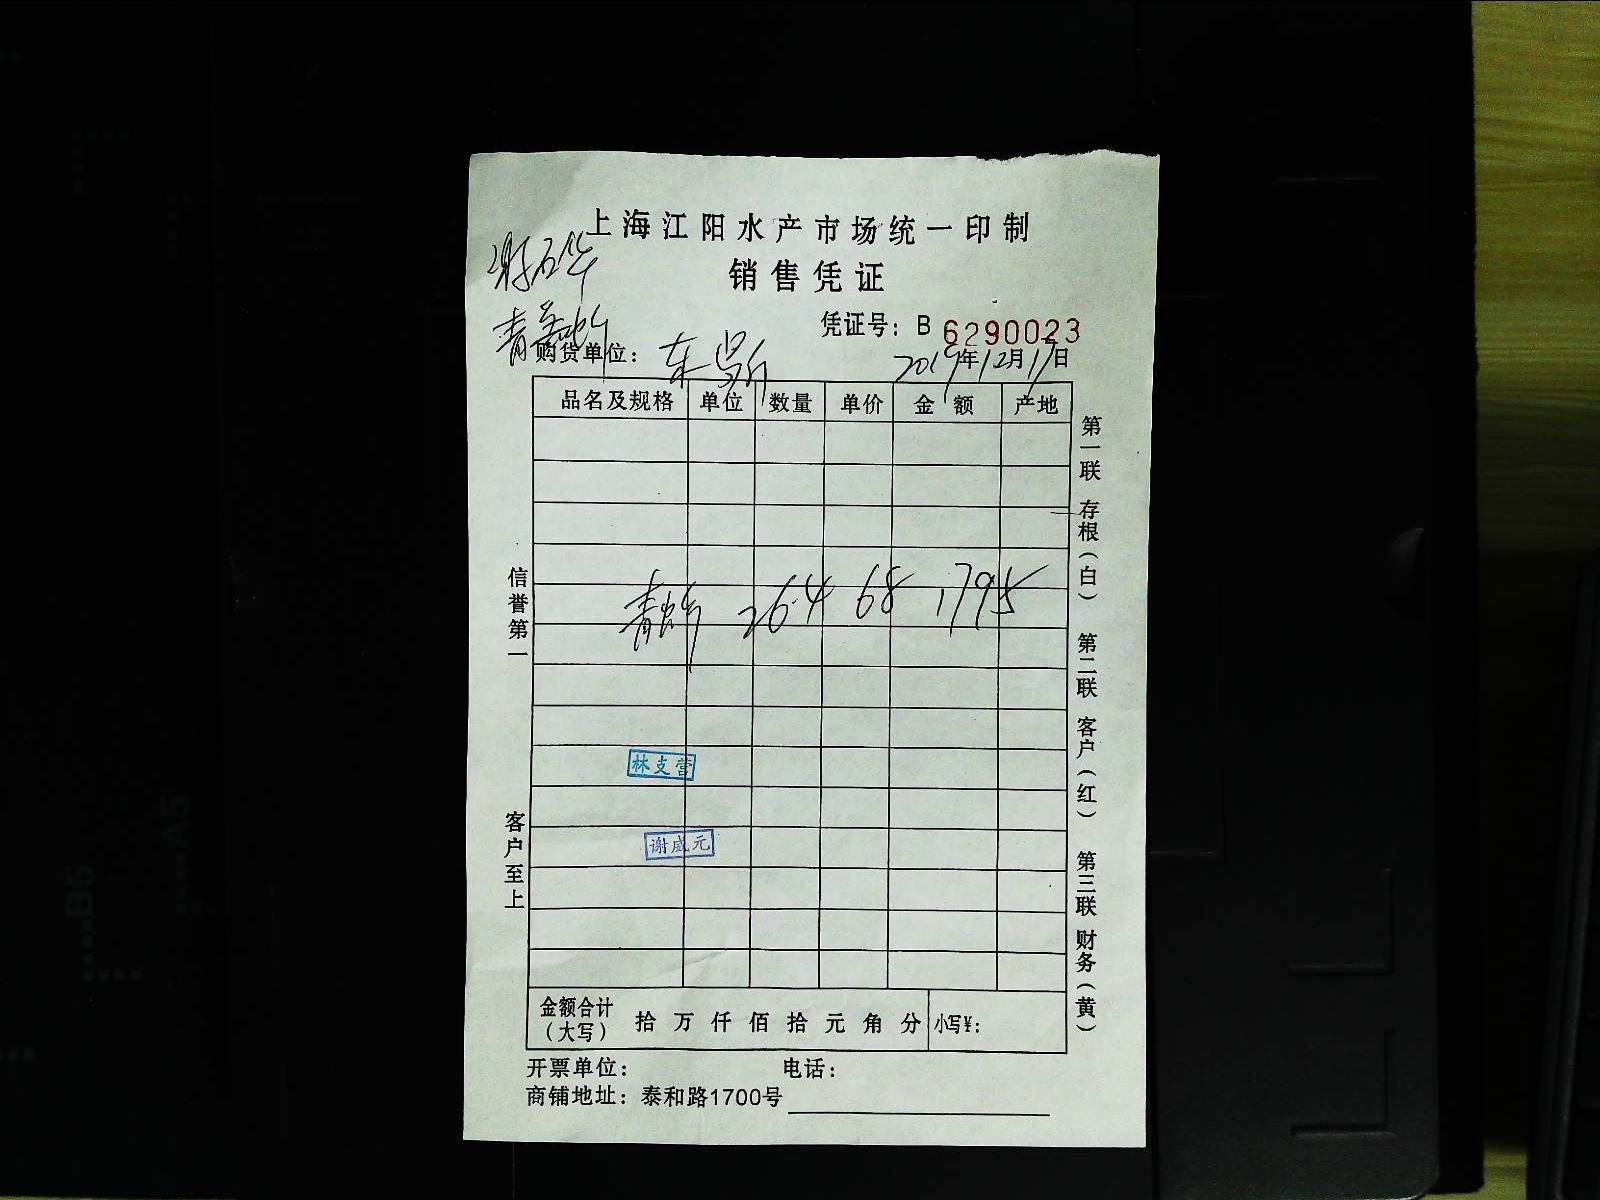 上海江阳水产市场统一印制
销售凭证
凭证号：B 6290023
购货单位：
2019年12月17日
品名及规格 单位 数量 单价 金额 产地
青虾 26.4 68 1795
林支营
谢威元
金额合计（大写） 拾 万 仟 佰 拾 元 角 分 小写¥：
开票单位： 电话：
商铺地址：泰和路1700号
信誉第一
客户至上
第一联 存根（白） 第二联 客户（红） 第三联 财务（黄）
B5
A5